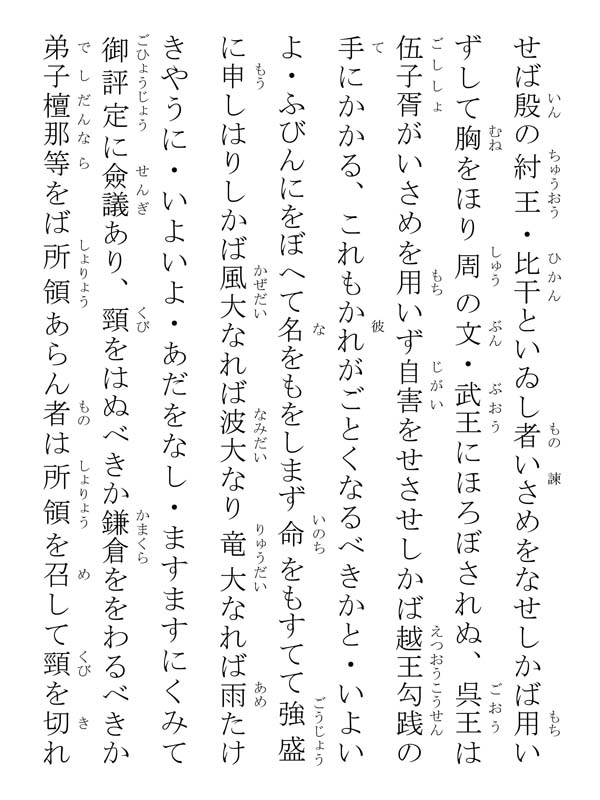 せば殷の紂王・比干といゐし者いさめをなせしかば用い
ずして胸をほり周の文・武王にほろぼされぬ、呉王は
伍子胥がいさめを用いず自害をせさせしかば越王勾践の
手にかかる、これもかれがごとくなるべきかと・いよい
よ・ふびんにをぼへて名をもをしまず命をもすてて強盛
に申しはりしかば風大なれば波大なり竜大なれば雨たけ
きやうに・いよいよ・あだをなし・ますますにくみて
御評定に僉議あり、頸をはぬべきか鎌倉ををわるべきか
弟子檀那等をば所領あらん者は所領を召して頸を切れ